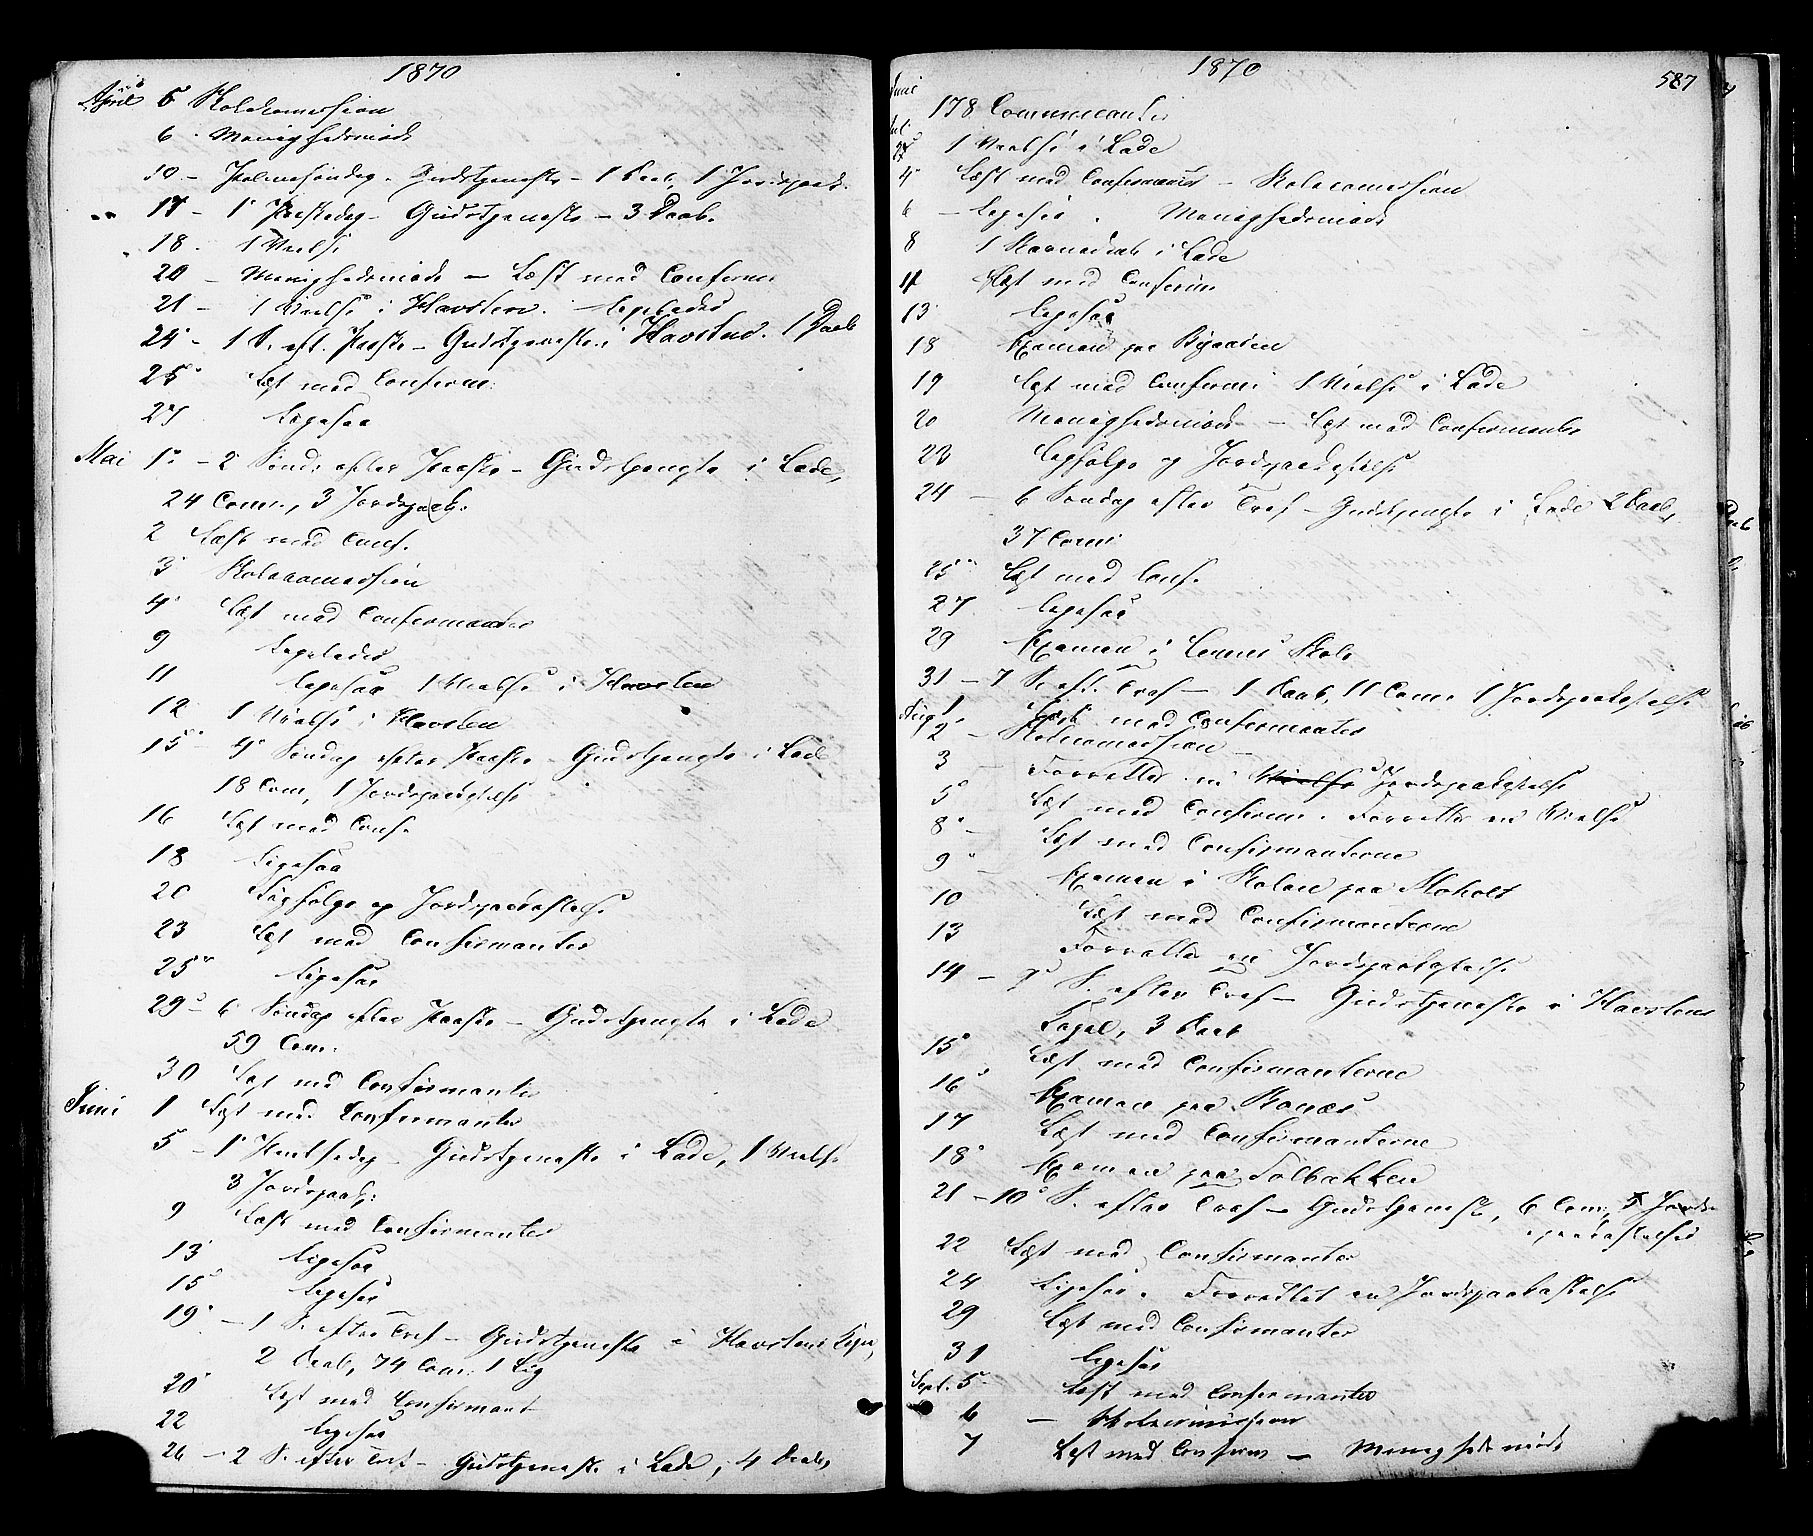 1870
April 5 Skolekomission
6. Menighedsmøde
10 - Palmesøndag. Gudstjeneste - 1 Daab, 1 Jordspaak.
17 - 1' Paaskedag - Gudstjeneste - 3 Daab.
18. 1 Vielse
20 - Menighedsmøde - Læst med Conferm
21 - 1 Vielse i Havsten.
24 - 1 S. eft. Paaske - Gudstjeneste i Havsten. 1 Daab
25 Læst med Conferm.
27 Ligesaa
Mai 1. - 2 Sønd. efter Paaske - Gudstjeneste i Lade,
24 Com., 3 Jordspaak.
2 Læst med Conf.
3 Skolecomission
4 Læst med Confermanter
9
11 Ligesaa 1 Vielse i Havsten
12 1 Vielse i Havsten
15 - 4 Søndag efter Paaske - Gudstjeneste i Lade
18 Com, 1 Jordspaakastelse
16 Læst med Conf.
18 Ligesaa
20 Ligfølge og Jordspaakastelse
23 Læst med Confirmanter
25 Ligesaa
29 - 6 Søndag efter Paaske - Gudstjeneste i Lade
59 Com.
30 Læst med Confirmanter
Juni 1 Læst med Confermanter
5 - 1 Pintsedag - Gudstjeneste i Lade, 1 Vielse
3 Jordspaak.
9 Læst med Confirmanter
13 Ligesaa
15 Ligesaa
19 - 1 S. efter Tref - Gudstjeneste i Havstens
2 Daab, 74 Com. 1 Lig
20 Læst med Confirmant
22 Ligesaa
26 - 2 S. efter Tref - Gudstjeneste i Lade, 4 Daab,
1870
587
Juni
178 Communicanter
Juli
1 Vielse i Lade
4 Læst med Confermanter - Skolecomission
6 - Ligesaa. Menighedsmøde
8 1 Barnedaab i Lade
11 Læst med Conferm
13 Ligesaa
18 Examen paa Byaasen
19 Læst med Conferm. 1 Vielse i Lade
20 Menighedsmøde - Læst med Confermanter
23 Ligfølge og Jordspaakastelse
24 - 6 Søndag efter Tref - Gudstjeneste i Lade 2 Daab,
37 Com.
25 Læst med Conf.
27 Ligesaa
29 Examen i Skole
31 - 7 S. eft. Tref - 1 Daab, 11 Com. 1 Jordspaakastelse
Aug. 1. Læst med Confermanter
2 - Skolecomission
3 - Forrettet en Vielse Jordspaakastelse
5 Læst med Conferm. Forrettet en Vielse
8 - Læst med Confirmanterne
9 - Examen i Skolen paa Moholt
10 Læst med Confirmanterne
13 Forrettet en Jordspaakastelse
14 - 9 S. efter Tref - Gudstjeneste i Havstens
Capel, 3 Daab
15 Læst med Confirmanterne
16 Examen paa Ranes
17 Læst med Confirmanterne
18 Examen paa Tolbakken
21 - 10 S. efter Tref - Gudstjeneste, 6 Com,
22 Læst med Confirmanter
24 Ligesaa. Forrettet en Jordspaakastelse
29 Læst med Confirmanter
31 Ligesaa
Sept. 5 Læst med Confermanter
6 - Skolecomission
7 Læst med Conferm - Menighedsmøde